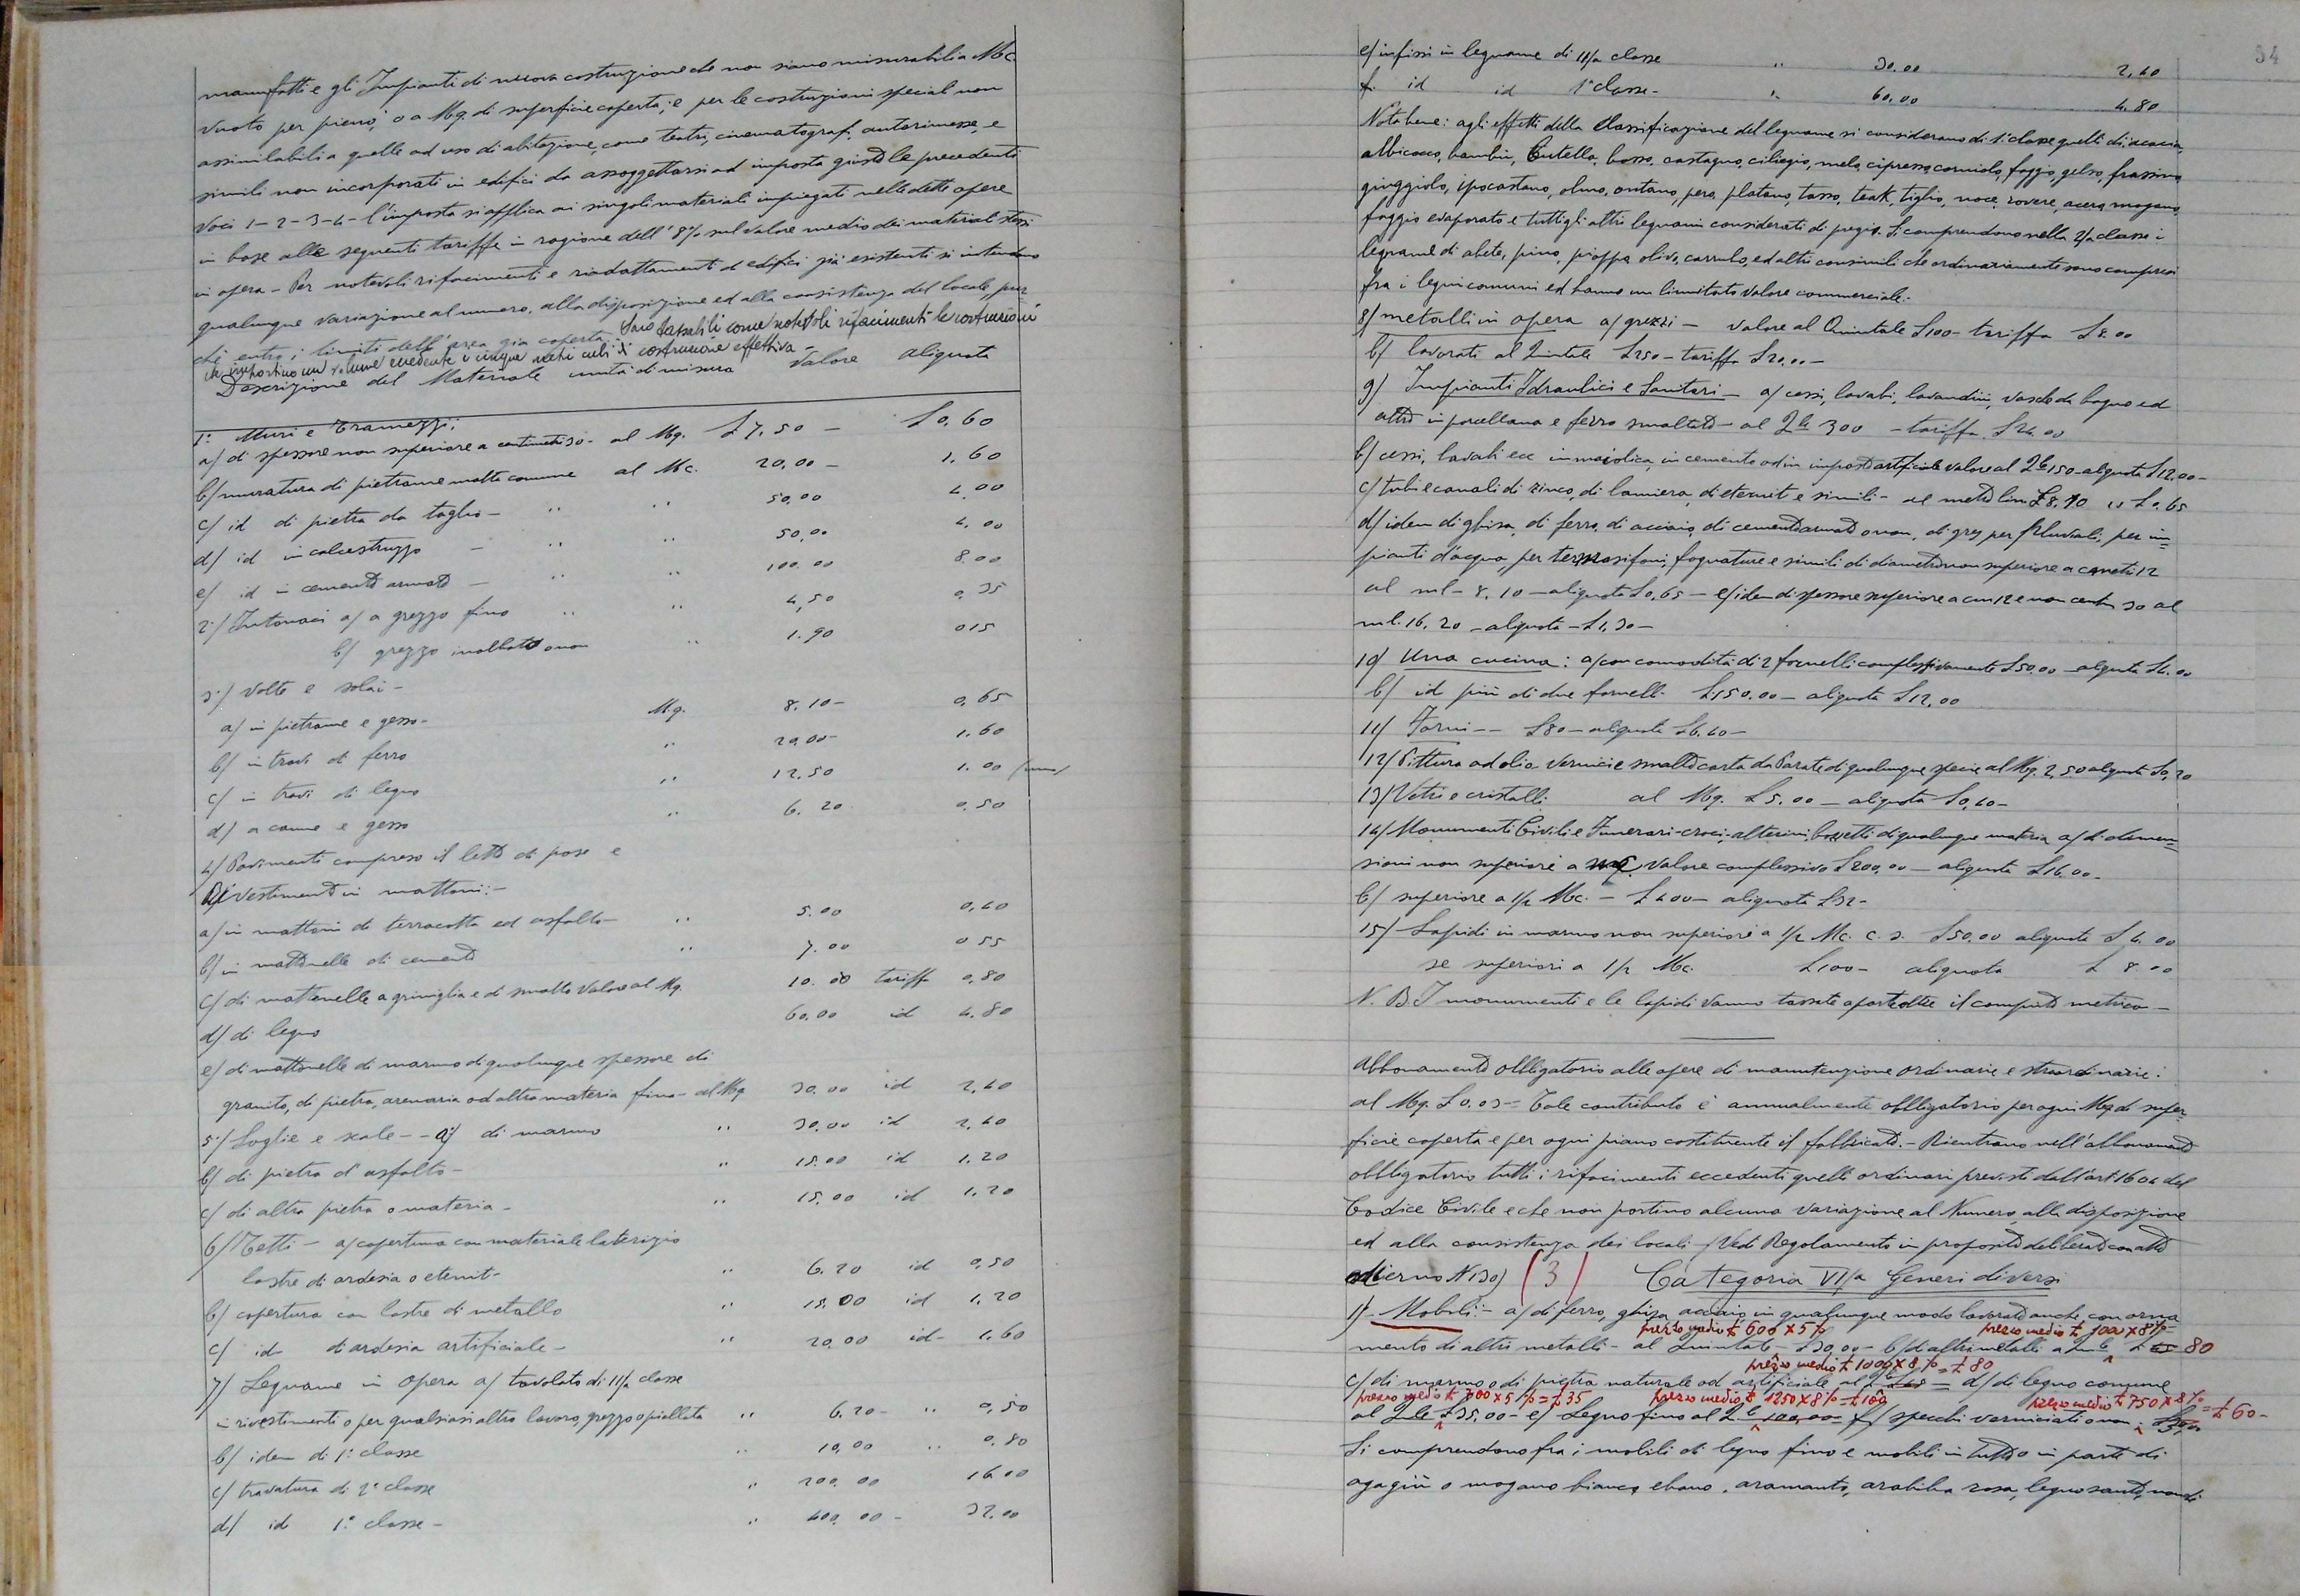 manufatti e gli Impianti di nuova costruzione che non siano misurabili a Mc.
vuoto per pieno, o a Mq. di superficie coperta; e per le costruzioni speciali non
assimilabili a quelle ad uso di abitazione, come teatri, cinematografi, autorimesse, e
simili non incorporati in edifici da assoggettarsi ad imposta giusto le precedenti
voci 1-2-3-4- l'imposta si applica ai singoli materiali impiegati nelle dette opere
in base alle seguenti tariffe in ragione dell'8% sul valore medio dei materiali stessi
in opera - Per notevoli rifacimenti e riadattamenti di edifici già esistenti si intendono
qualunque variazione al numero, alla disposizione ed alla consistenza del locale, pur
chè entro i limiti dell'area già coperta. Sono tassabili come notevoli rifacimenti le costruzioni
che importino un volume eccedente i cinque metri cubi di costruzione effettiva -
Descrizione del Materiale unità di misura Valore aliquota
1° Muri e Tramezzi:
a/ di spessore non superiore a centimetri 30- al Mq. £ 7,50 - £ 0,60
b/ muratura di pietrame matto comune al Mc. 20,00 - 1,60
c/ id di pietra da taglio - " " 50,00 4,00
d/ id in calcestruzzo - " " 50,00 4,00
e/ id in cemento armato - " " 100.00 8.00
2°/ Intonaci a/ a grezzo fino " " 4,50 0,35
b/ grezzo imbiancato o non " 1.90 015
3°/ Volte e solai -
a/ in pietrame e gesso - Mq. 8.10 - 0,65
b/ in travi di ferro " 20,00 - 1.60
c/ in travi di legno " 12.50 1.00 (uno)
d/ a canne e gesso " 6.20 0,50
4/ Pavimenti compreso il letto di posa e
Rivestimento in mattoni: -
a/ in mattoni di terracotta ed asfalto - " 5.00 0,40
b/ in mattonelle di cemento " 7.00 0 55
c/ di mattonelle a graniglia e di smalto Valore al Mq. 10.00 tariffa 0,80
d/ di legno 60.00 id 4.80
e/ di mattonelle di marmo di qualunque spessore di
granito, di pietra, arenaria od altra materia fina - al Mq 30.00 id 2,40
5°/ Soglie e scale - - a/ di marmo " 30.00 id 2,40
b/ di pietra d'asfalto - " 15.00 id 1.20
c/ di altra pietra o materia - " 15.00 id 1.20
6/ Tetti - a/ copertura con materiale laterizio
lastre di ardesia o eternit - " 6.20 id 0,50
b/ copertura con lastre di metallo " 15.00 id 1.20
c/ id di ardesia artificiale - " 20,00 id - 1.60
7/ Legname in opera a/ tavolato di II/a classe
in rivestimenti o per qualsiasi altro lavoro, grezzo o piallato " 6.20 - " 0,50
b/ idem di 1° classe " 10,00 " 0.80
c/ travatura di 2° classe " 200.00 16.00
d/ id 1° classe - " 400.00 - 32.00
34
e/ infissi in legname di II/a classe " 30.00 2,40
f. id id 1° classe - " 60,00 4.80
Nota bene: agli effetti della Classificazione del legname si considerano di 1° classe quelli di: acacia,
albicocco, bambù, betulla, bosso, castagno, ciliegio, melo, cipresso, corniolo, faggio, gelso, frassino
giuggiolo, ipocastano, olmo, ontano, pero, platano, tasso, teak, tiglio, noce, rovere, acero, mogano,
faggio evaporato e tutti gli altri legnami considerati di pregio. Si comprendono nella 2/a classe i
legname di abete, pino, pioppo, olivo, carrubo, ed altri consimili che ordinariamente sono compresi
fra i legni comuni ed hanno un limitato valore commerciale.-
8/ metalli in opera a/ grezzi - valore al Quintale £100 - tariffa £8.00
b/ lavorati al Quintale £250 - tariffa £20,00 -
9/ Impianti Idraulici e Sanitari - a/ cessi, lavabi, lavandini, vasche da bagno ed
altro in porcellana e ferro smaltato - al Qle 300 - tariffa £24.00
b/ cessi, lavabi ecc in maiolica, in cemento od in impasto artificiale valore al Qle 150 - aliquota £12,00 -
c/ tubi e canali di zinco, di lamiera, di eternit e simili - al metro lin £8.10 " £0.65
d/ idem di ghisa, di ferro, di acciaio, di cemento armato o non, di gres per pluviali, per im=
pianti d'acqua, per termosifoni, fognature e simili di diametro non superiore a cmeti 12
al ml - 8.10 - aliquota £0,65 - e/ idem di spessore superiore a cm 12 e non centm 30 al
ml. 16.20 - aliquota - £1,30 -
10/ Una cucina: a/ con comodità di 2 fornelli complessivamente £50.00 - aliquota £4.00
b/ id più di due fornelli £150.00 - aliquota £12,00
11/ Forni - - £80 - aliquota £6.40 -
12/ Pittura ad olio vernici e smalto carta da Parato di qualunque specie al Mq. 2,50 aliquota £0,20
13/ Vetri e cristalli al Mq. £5,00 - aliquota £0,40 -
14/ Monumenti Civili e Funerari - croci, alterini, bozzetti di qualunque materia a/ di dimen=
sioni non superiore a valore complessivo £200,00 - aliquota £16.00 -
b/ superiore a 1/2 Mc. - £400 - aliquota £32 -
15/ Lapidi in marmo non superiore a 1/2 Mc. c. s. £50.00 aliquota £4.00
se superiori a 1/2 Mc. £100 - aliquota £8.00
N. B. I monumenti e le lapidi vanno tassate a parte oltre il computo metrico -
Abbonamento obbligatorio alle opere di manutenzione ordinarie e straordinarie:
al Mq. £0.03 = Tale contributo è annualmente obbligatorio per ogni Mq. di super
ficie coperta e per ogni piano costituente il fabbricato. - Rientrano nell'abbonamento
obbligatorio tutti i rifacimenti eccedenti quelli ordinari previsti dall'art 1604 del
Codice Civile e che non portino alcuna variazione al Numero, alla disposizione
ed alla consistenza dei locali - (Vedi Regolamento in proposito deliberato con atto
odierno N 130) (3) Categoria VI/a Generi diversi
1°/ Mobili: - a/ di ferro, ghisa, acciaio, in qualunque modo lavorato anche con orna
prezzo medio £ 600 x 5% prezzo medio £ 1000 x 8%=
mento di altri metalli - al Quintale - £30,00 - b/ di altri metalli a Qle £ 80
prezzo medio £ 1000 x 8% = £ 80
c/ di marmo o di pietra naturale od artificiale al Qle £48 = d/ di legno comune
prezzo medio £ 700 x 5% = £ 35 prezzo medio £ 1250 x 8% = £ 100 prezzo medio £ 750 x 8% = £ 60 -
al Qle £35,00 - e/ Legno fino al Qle 100,00 = f/ specchi verniciati o non
Si comprendono fra i mobili di legno fino e mobili in tutto o in parte di
agagiù o mogano bianco, ebano, aramanto, arabiba rosa, legno santo,